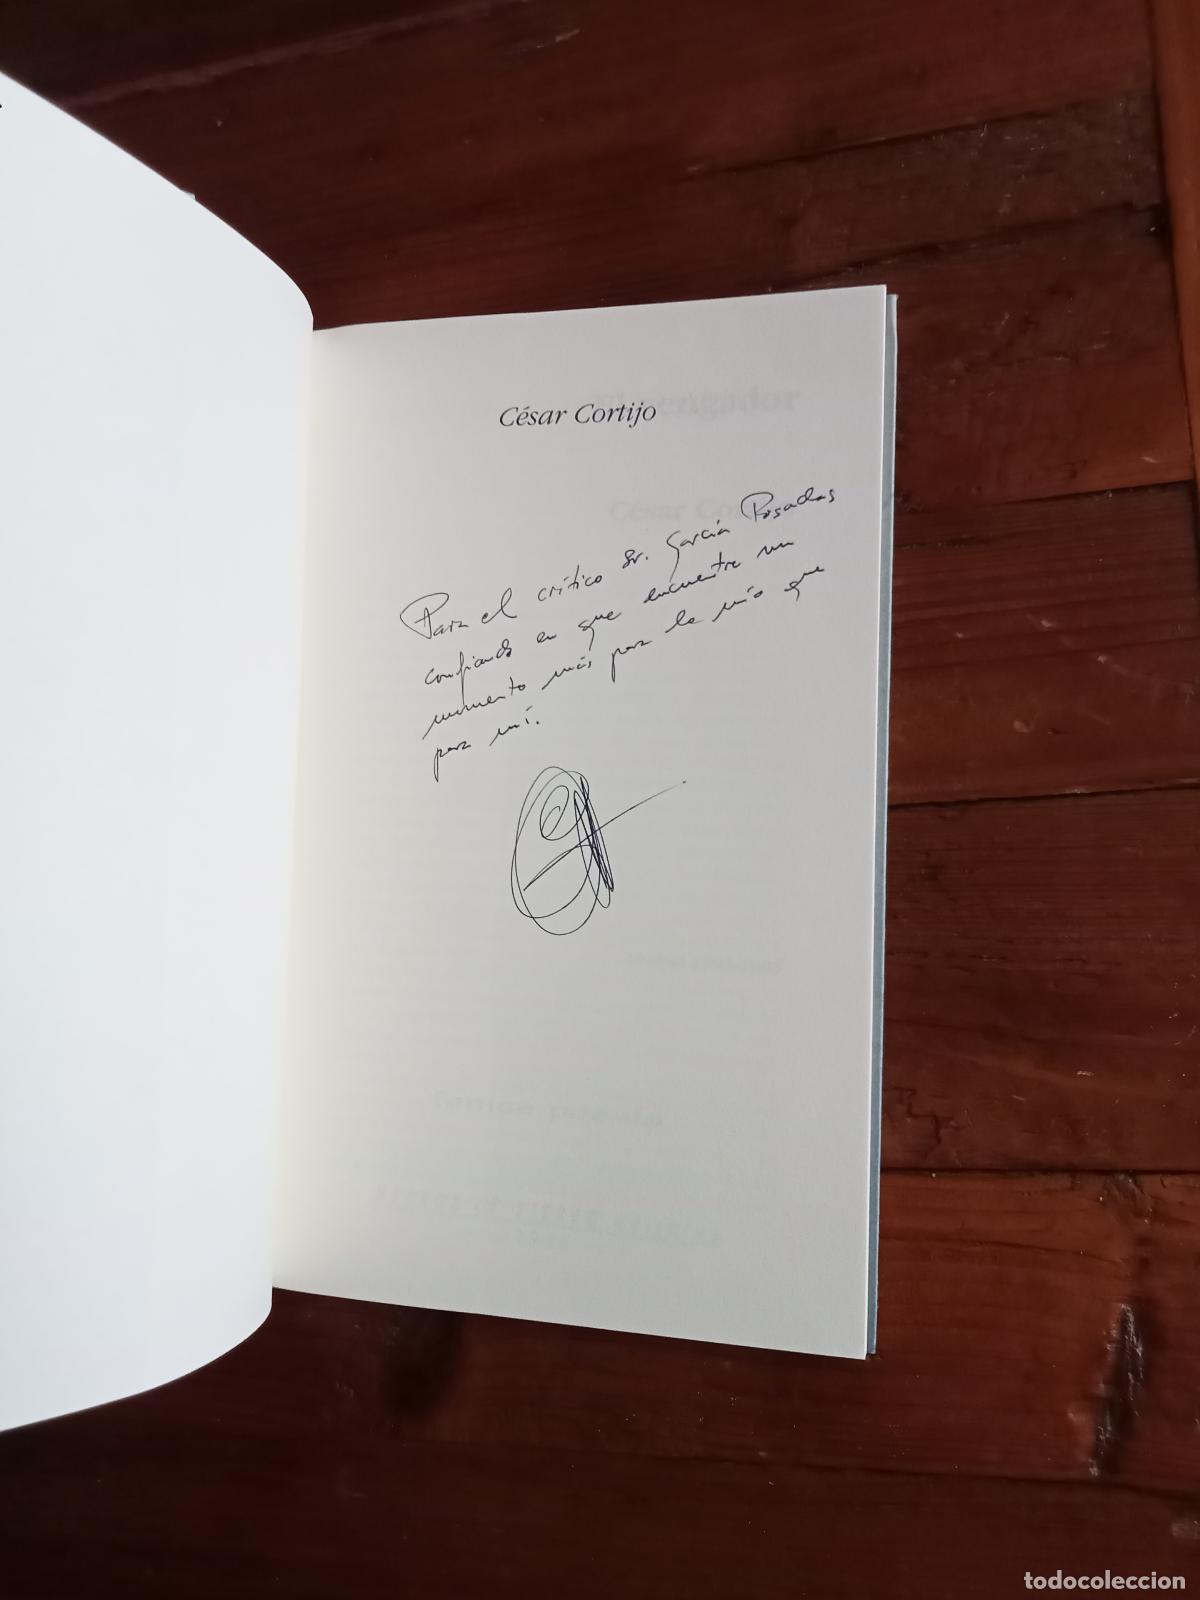 El vengador
César Cortijo
César Co
Para el crítico Sr. García Posadas
confiando en que encuentre un
momento más para lo mío que
para mí.
todocoleccion